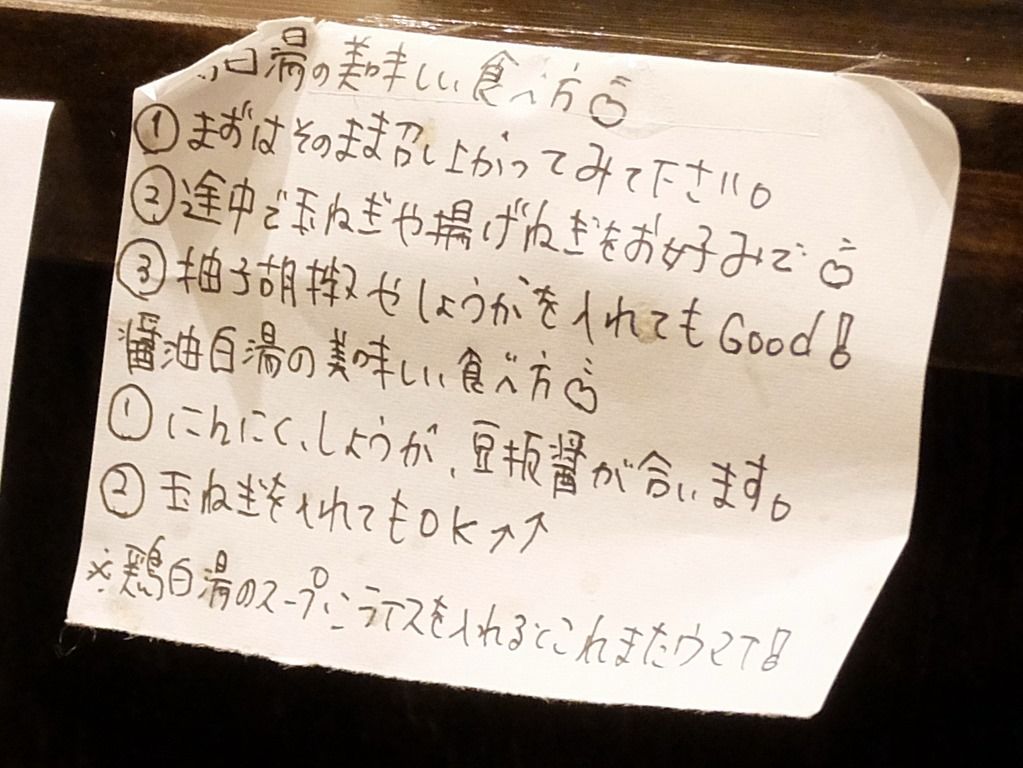 白湯の美味しい食べ方
①まずはそのまま召し上がってみて下さい。
②途中で玉ねぎや揚げねぎをお好みで
③柚子胡椒やしょうがを入れてもGood!
醤油白湯の美味しい食べ方
①にんにく、しょうが、豆板醤が合います。
②玉ねぎを入れてもOK↗↗
※鶏白湯のスープにライスを入れるとこれまたウマイ!